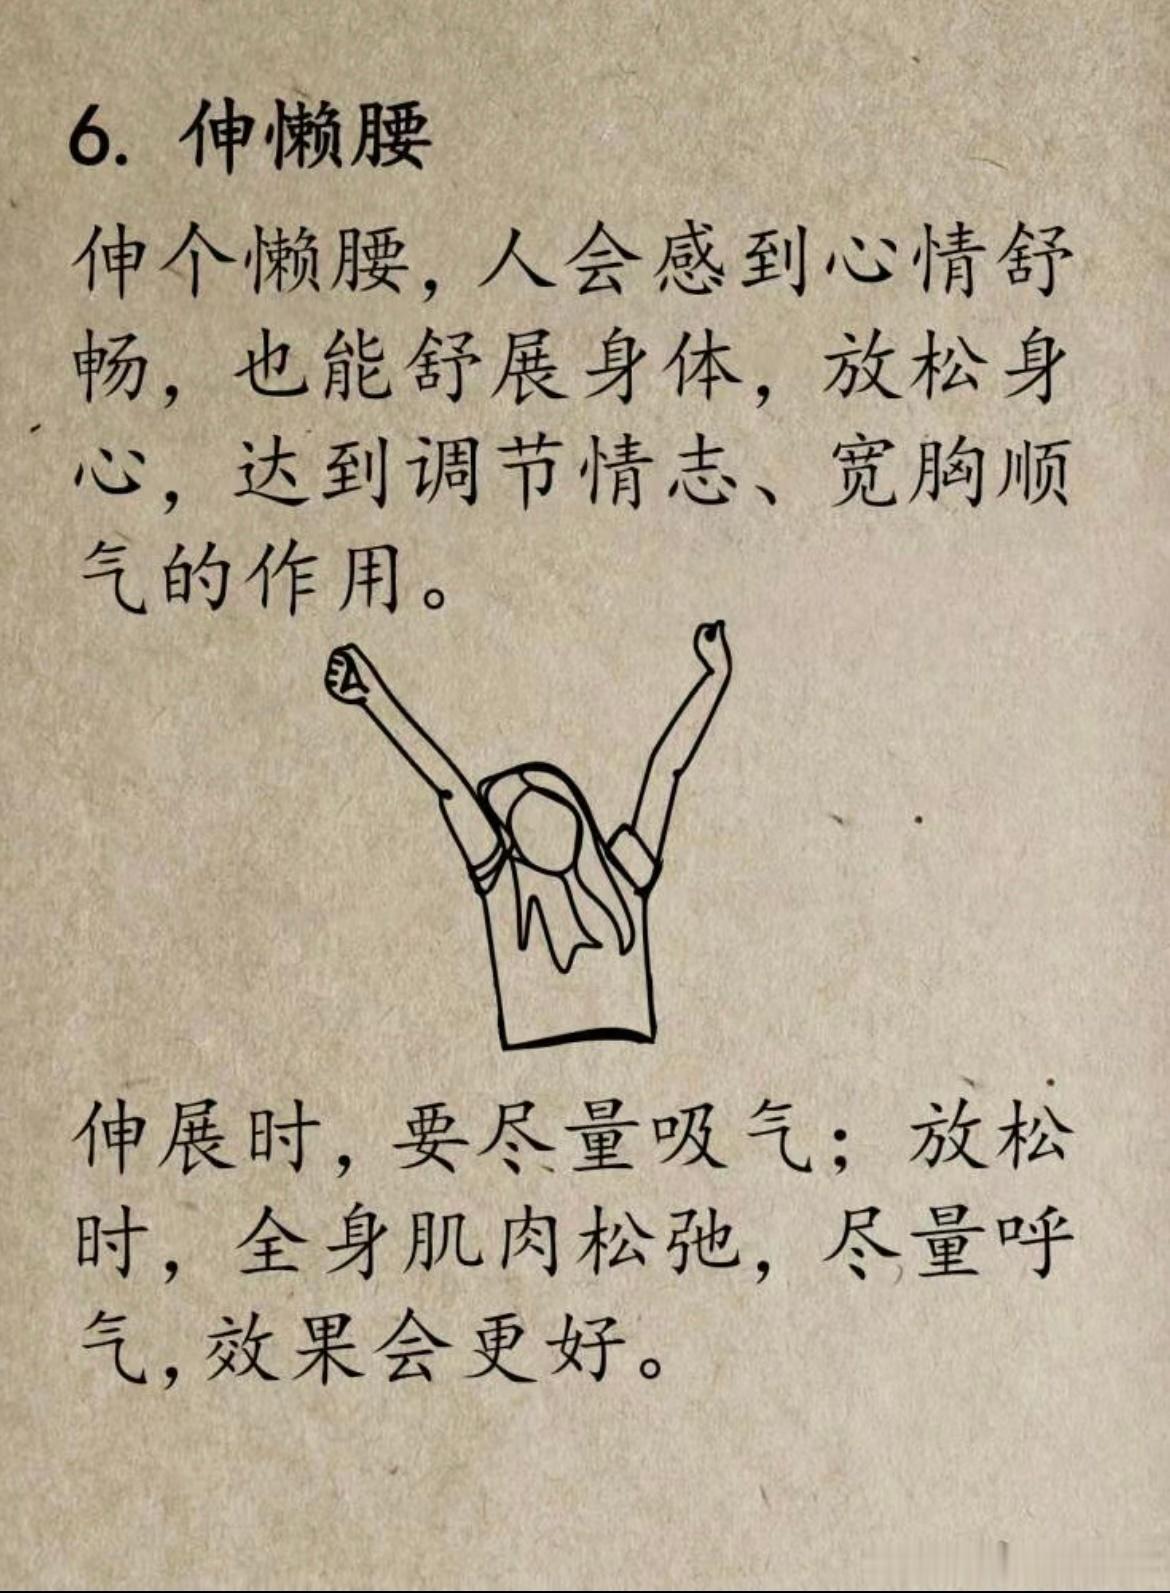 6. 伸懒腰
伸个懒腰，人会感到心情舒
畅，也能舒展身体，放松身
心，达到调节情志、宽胸顺
气的作用。
伸展时，要尽量吸气；放松
时，全身肌肉松弛，尽量呼
气，效果会更好。